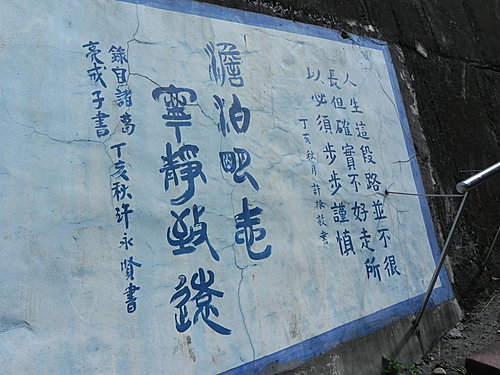 人生這段路並不很
長但確實不好走所
以必須步步謹慎
丁亥秋月許敬書
澹泊明志
寧靜致遠
錄自諸葛
亮戒子書
丁亥秋許永賢書